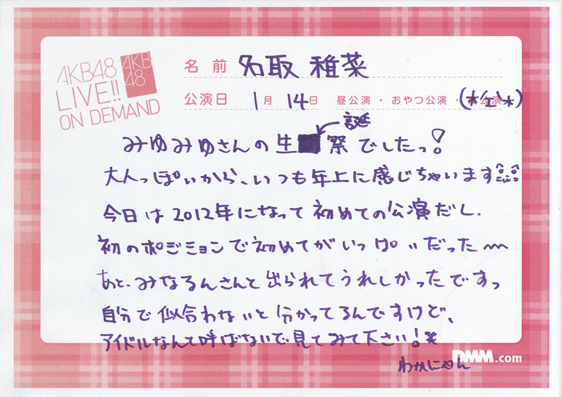 AKB48
LIVE!!
ON DEMAND
AKB
48
名前 名取 稚菜
公演日 1月 14日 昼公演・おやつ公演・
誕
みゆみゆさんの生 祭でしたっ!
大人っぽいから、いつも年上に感じちゃいます
今日は2012年になって初めての公演だし、
初のポジションで初めてがいっぱいだった〰
あと、みなるんさんと出られてうれしかったですっ
自分で似合わないと分かってるんですけど、
アイドルなんて呼ばないで見てみて下さい!
わかにゃん
DMM.com